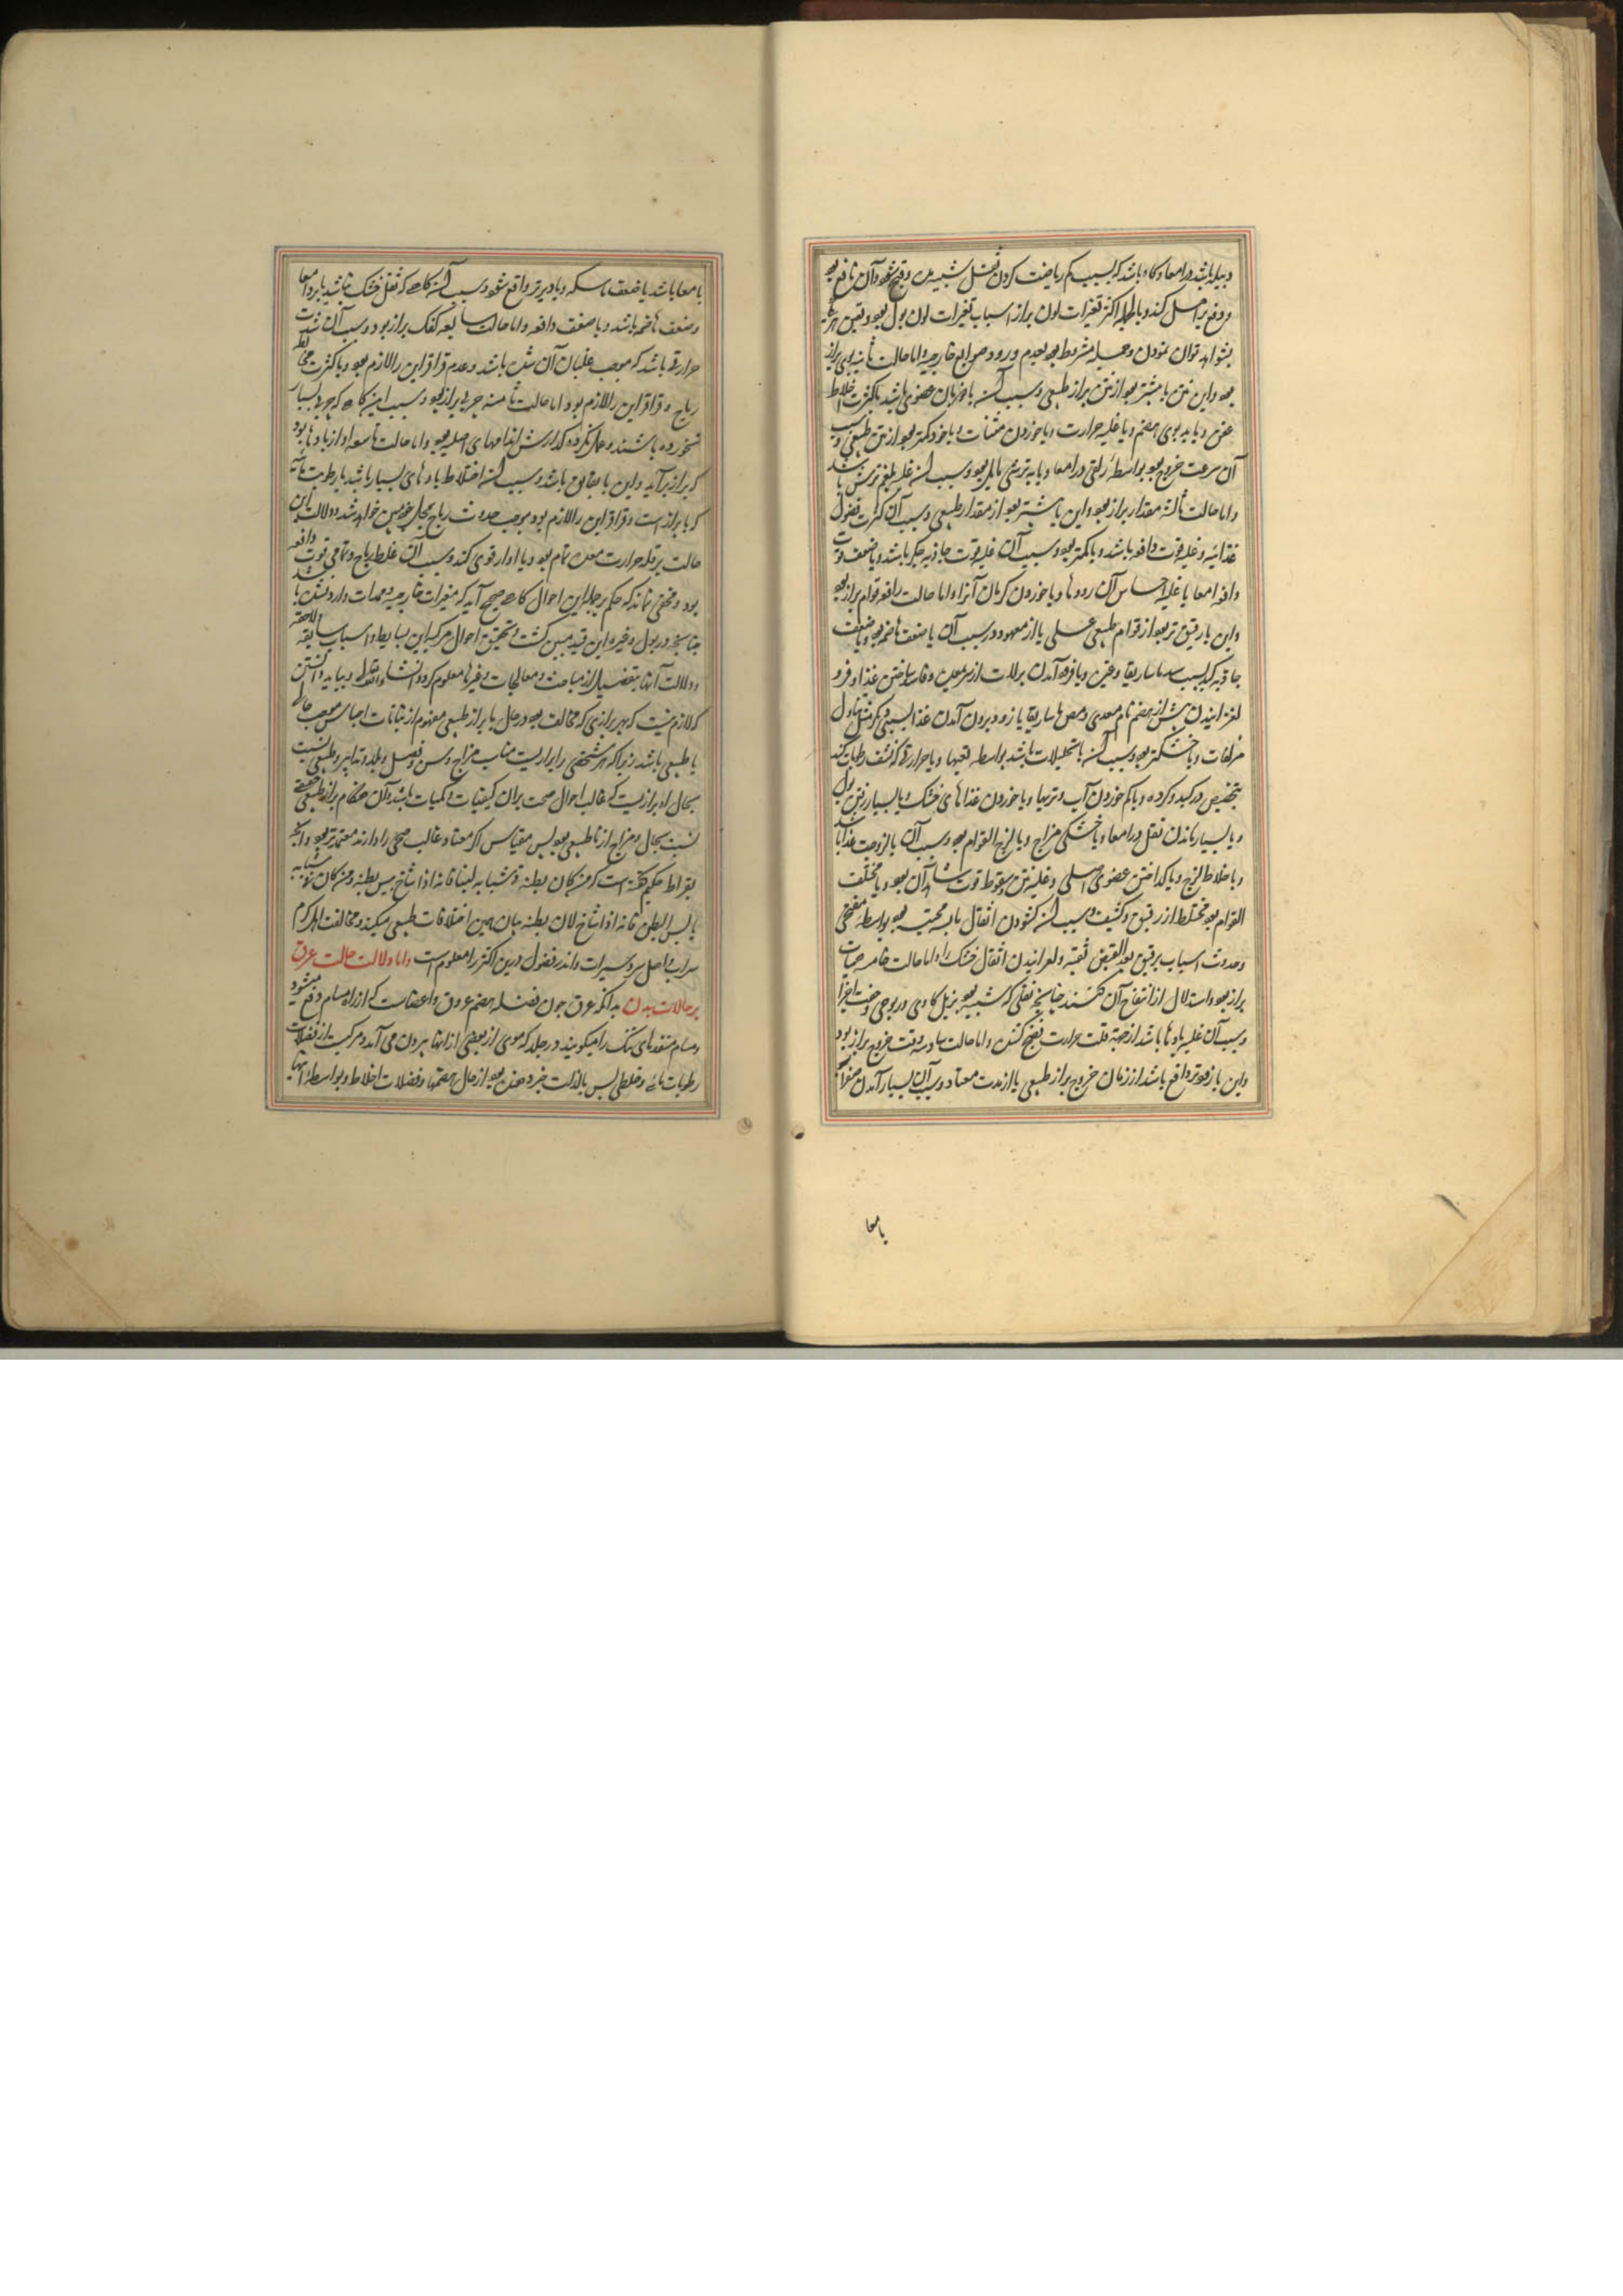 دبیله باشد در امعا و گاه باشد که بسبب کم ریاضت کردن ثفل شبیه به و قیح شود و آن نافع بود
و دفع براصل کند و بالجمله اکثر تغیرات لون براز اسباب تغیرات لون بول بود و تعین هر یک
بشواهد توان نمودن و جمله مشروط بود بعدم ورود صوابغ خارجیه و اما حالت ثانیه بوی براز
بود و این نتن یا بیشتر بود از نتن براز طبعی و سبب آن یا ذوبان عضوی باشد یا کثرت اخلاط
عفن و یا بد بوی هضم و یا غلبه حرارت و یا خوردن منتنات و یا خود کمتر بود از نتن طبعی و سبب
آن سرعت خروج بود بواسطه زلقی در امعا و یا به ترشی مایل بود و سبب آن غلبه بلغم ترش باشد
و اما حالت ثالثه مقدار براز بود و این یا بیشتر بود از مقدار طبعی و سبب آن کثرت فضول
غذائیه و غلبه قوت دافعه باشد و یا کمتر بود و سبب آن غلبه قوت جاذبه جگر باشد و یا ضعف قوت
دافعه امعا یا غلبه احساس آن رودها و یا خوردن کرمان آنرا و اما حالت رابعه قوام براز بود
و این یا رقیق تر بود از قوام طبعی عسلی یا از معهود و سبب آن یا ضعف هاضمه بود و یا ضعف
جاذبه کبد بسبب سده ماساریقا و غیره و یا فرود آمدن نزلات از سر بمعده و فاسد ساختن غذا و فرو
لغزانیدن پیش از هضم تام معدی و مص ماساریقا یا زود بیرون آمدن غذا بسببی دیگر مثل تناول
مزلقات و یا خشکتر بود و سبب آن یا تحلیلات باشد بواسطه تعبها و یا حرارتی که نشف رطوبات کند
بتخصیص در کبد و گرده و یا کم خوردن آب و تریها و یا خوردن غذاهای خشک و یا بسیار رفتن بول
و یا بسیار ماندن ثفل در امعا و یا خشکی مزاج و یا لزج القوام بود و سبب آن یا لزوجت غذا باشد
و یا خلاط لزج و یا گداختن عضوی اصلی و غلبه نتن و سقوط قوت شاهد آن بود و یا مختلف
القوام بود مختلط از رقیق و کثیف و سبب آن گشودن اثقال یابسه محتبسه بود بواسطه مفتحی
و حدوث اسباب رقیق بعد القبض ثقبه و لغزانیدن اثقال خشک را و اما حالت خامسه هیات
براز بود و استدلال از انتفاخ آن کنند چنانچه ثفلی که شبیه بود بزبل گاوی در بوحی و خفت اجزا
و سبب آن غلبه بادها باشد از جهة قلت حرارت نضج کننده و اما حالت سادسه وقت خروج براز بود
و این یا زودتر واقع باشد از زمان خروج براز طبعی یا از مدت معتاد و سبب آن بسیار آمدن صفرا
بامعا
بامعا باشد یا ضعف ماسکه و یا دیرتر واقع شود و سبب آن گاهی که ثفل خشک نباشد یا برد امعا
و ضعف هاضمه باشد و یا ضعف دافعه و اما حالت سابعه کفک براز بود و سبب آن شدت
حرارتی باشد که موجب غلیان آن شده باشد و عدم قراقر این را لازم بود و یا کثرت مخالطه
ریاح و قراقر این را لازم بود اما حالت ثامنه چربی براز بود و سبب این گاهی که چربی بسیار
نخورده باشند و عمل نکرده گدازش اندامهای اصلیه بود و اما حالت تاسعه آواز بادها بود
که براز برآید و این یا بقابق باشد و سبب آن اختلاط بادهای بسیار باشد با رطوبت مائیه
که با براز است و قراقر این را لازم بود و موجب حدوث ریاح بمحل خویش خواهد شد و دلالت این
حالت بر قلت حرارت معده تمام بود و یا ادار قوی کند و سبب آن غلظ ریاح و تمامی قوت دافعه
بود و مخفی نماند که حکم بر جمله این احوال گاهی صحیح آید که مغیرات خارجیه و معدات وارد نشده باشد
چنانچه در بول و غیره این قید مبین گشت و تحقیق احوال مرکبه این بسایط و اسباب سابقه و لاحقه
و دلالت آنها بتفصیل از مباحث و معالجات و غیرها معلوم گردد انشاء الله و بباید دانستن
که لازم نیست که هر برازی که مخالف بود در حال با براز طبعی مفهوم از بیانات اجناس موجب حالت
نا طبعی باشد زیرا که هر شخصی را برازیست مناسب مزاج و سن و فصل و بلد و تدابیر و طبعی نسبت
بحال او برازیست که غالب احوال صحت بران کیفیات و کمیات باشد و آن هنگام براز طبعی حقیقی
نسبت بحال و مزاج او ناطبعی بود پس مقیاس اگر معتاد غالب صحی را دارند معتمدتر بود و آنچه
بقراط حکیم گفته است که من کان بطنه فی شبابه لینا فانه اذا شاخ یبس بطنه و من کان فی شبابه
یابس البطن فانه اذا شاخ لان بطنه بیان همین اختلافات طبعی میکند و مخالفت اهل گرم
سراب و اهل سردسیرات و اندر فصول درین اکثر را معلوم است و اما دلالت حالت عرق
بر حالات بدن بدانکه عرق چون فضله هضم عروق و اعضاست که از راه مسام دفع میشود
و مسام منفذهای تنگ را میگویند در جلد که موی از بعضی از آنها بیرون می آید و مرکبست از فضلات
رطوبات مائی و خلطی پس بالذات خبر دهنده بود از حال هضمها و فضلات اخلاط و بواسطه اینها